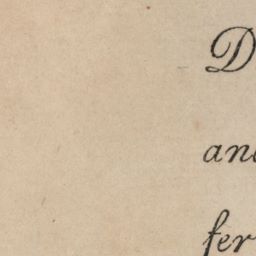 D
and
fer